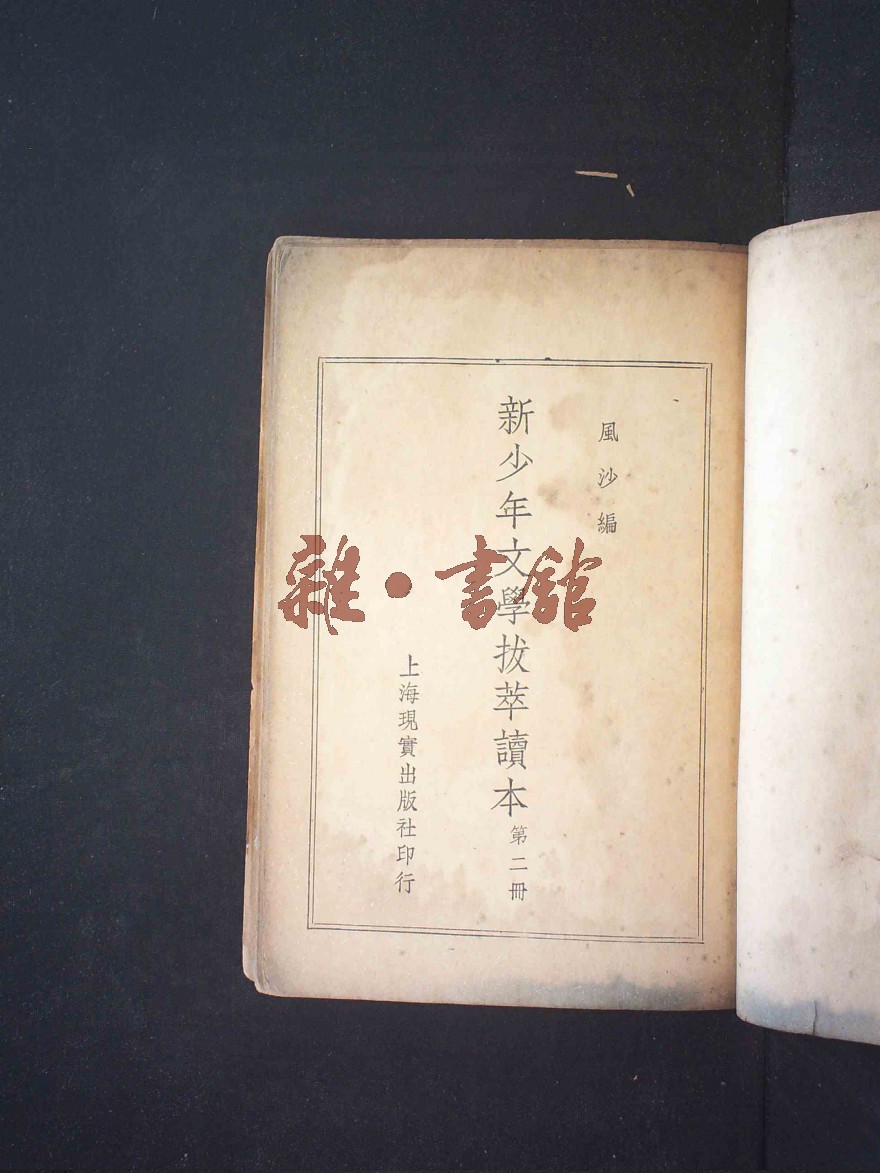 風沙編
新少年文學拔萃讀本 第二冊
上海現實出版社印行
雜·書館